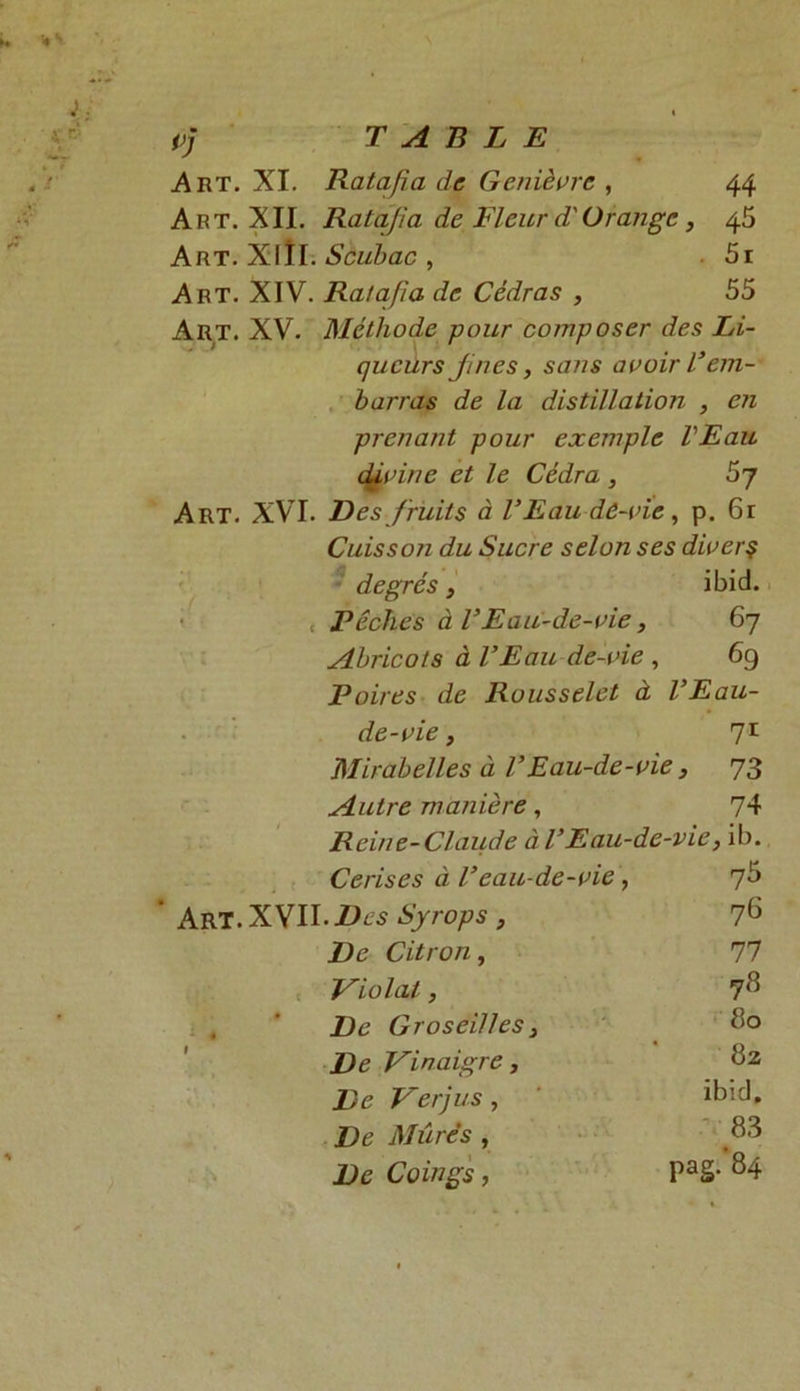 vj TABLE
ART. XI. Ratafia de Genièvre , 44
ART. XII. Ratafia de Fleur d'Orange , 45
ART. XIII. Scubac , 51
ART. XIV. Ratafia de Cédras , 55
ART. XV. Méthode pour composer des Li-
queurs fines, sans avoir l'em-
barras de la distillation , en
prenant pour exemple l'Eau
divine et le Cédra , 57
ART. XVI. Des fruits à l'Eau-de-vie , p. 61
Cuisson du Sucre selon ses divers
degrés , ibid.
Pêches à l'Eau-de-vie , 67
Abricots à l'Eau-de-vie , 69
Poires de Rousselet à l'Eau-
de-vie , 71
Mirabelles à l'Eau-de-vie , 73
Autre manière , 74
Reine-Claude à l'Eau-de-vie, ib.
Cerises à l'eau-de-vie , 75
ART. XVII. Des Syrops , 76
De Citron , 77
Violat , 78
De Groseilles , 80
De Vinaigre , 82
De Verjus , ibid.
De Mûres , 83
De Coings , pag. 84